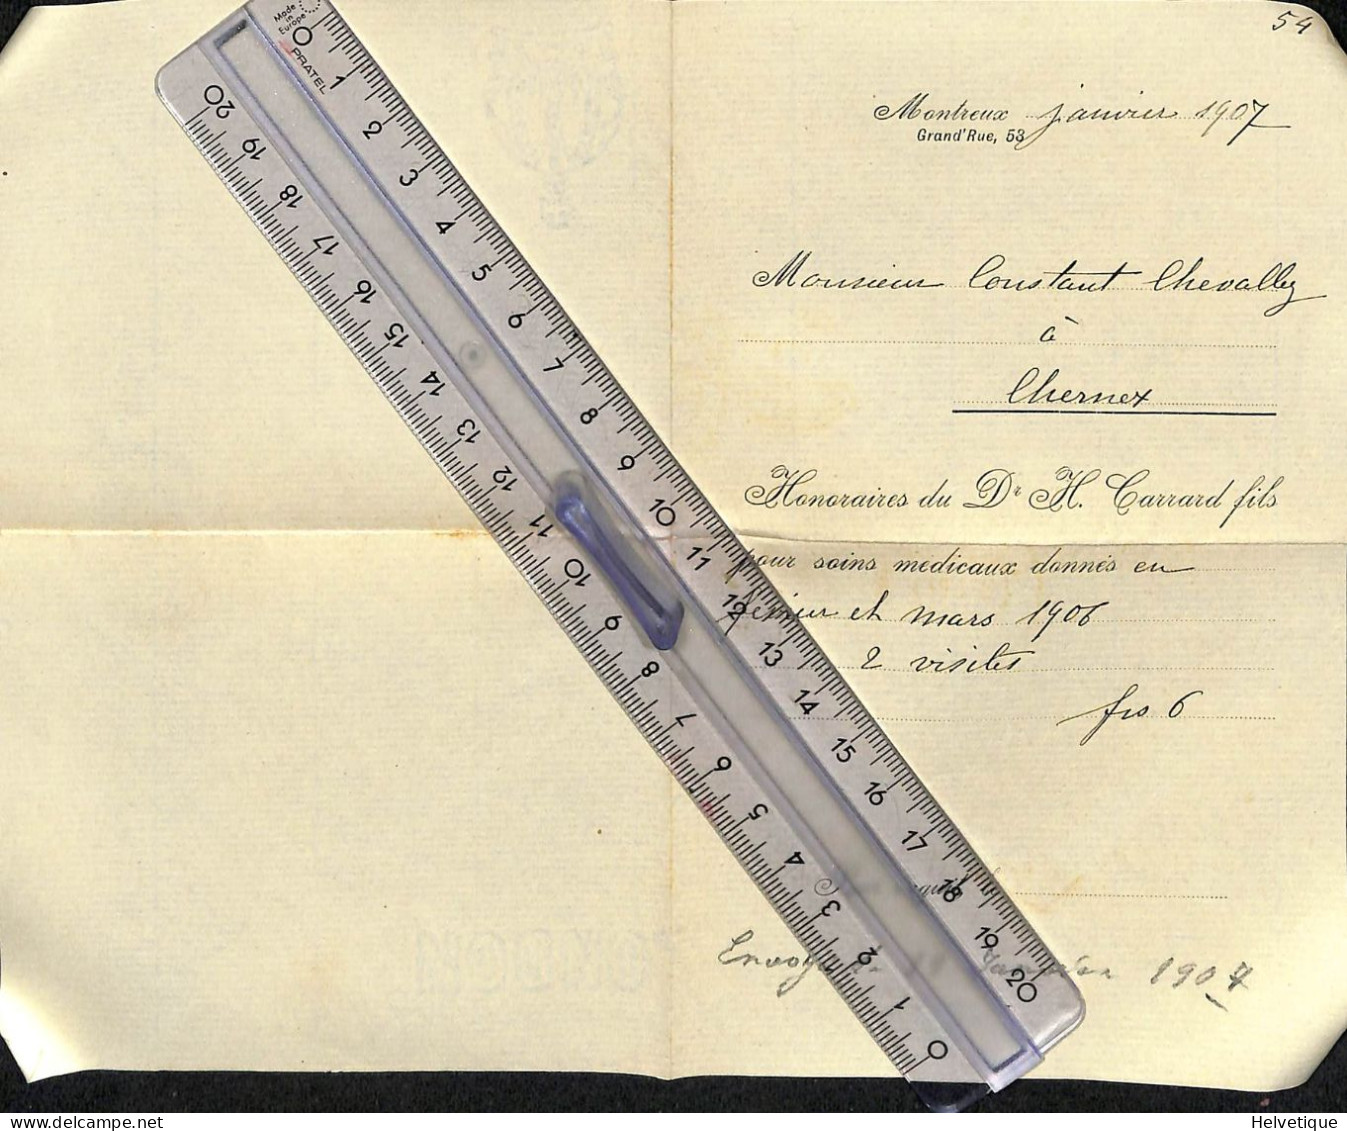 54
Montreux janvier 1907
Grand'Rue, 53
Monsieur Constant Chevalley
à
Chernex
Honoraires du Dr H. Carrard fils
pour soins médicaux donnés en
février et mars 1906
2 visites
frs 6
Envoyé 1907
Made in Europe
PRATEL
0 1 2 3 4 5 6 7 8 9 10 11 12 13 14 15 16 17 18 19 20
20 19 18 17 16 15 14 13 12 11 10 9 8 7 6 5 4 3 2 1 0
Helvetique